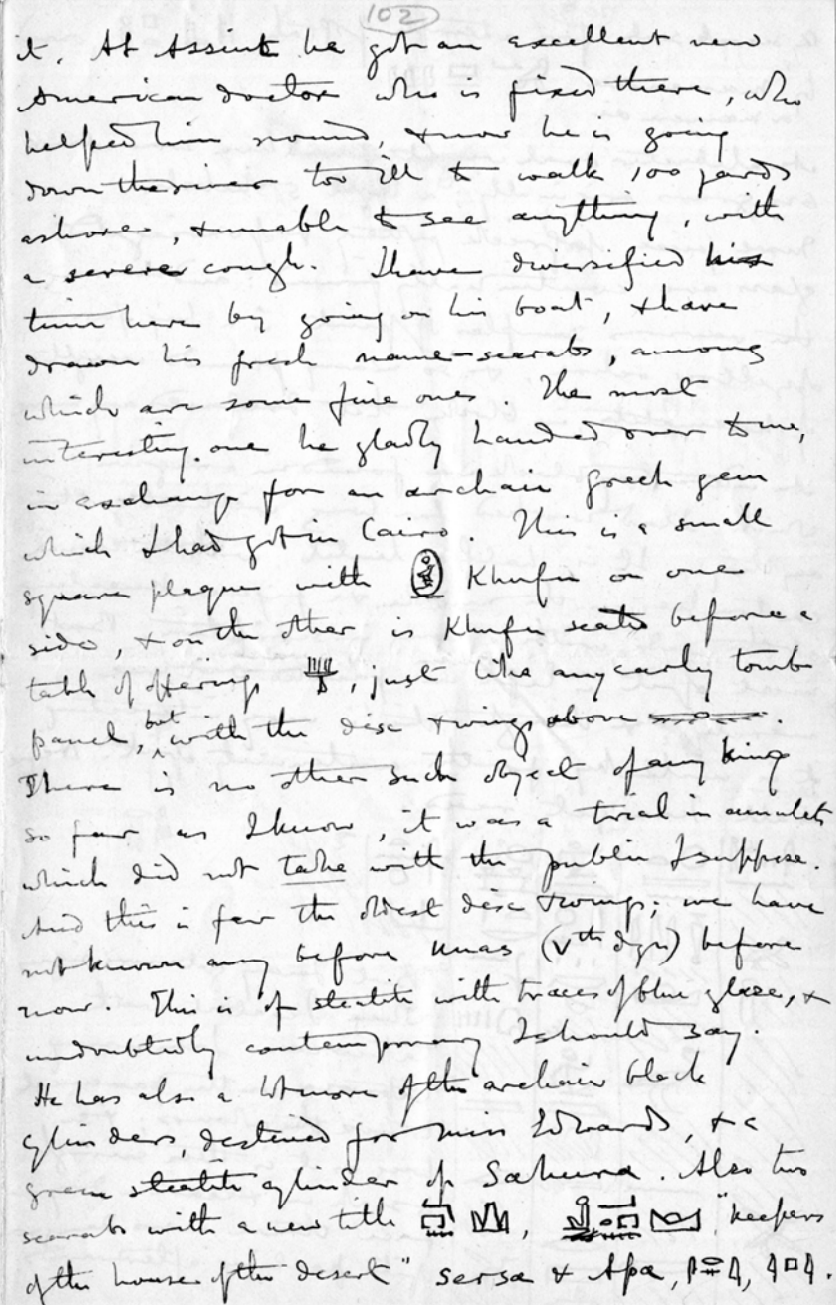 102
it. At Assiut he got an excellent new
American doctor who is fixed there, who
helped him round, & now he is going
down the river too ill to walk 100 yards
ashore, & unable to see anything, with
a severe cough. I have diversified his
time here by going on his boat, & have
drawn his fresh name-scarabs, among
which are some fine ones. The most
interesting one he gladly handed over to me,
in exchange for an archaic Greek gem
which I had got in Cairo. This is a small
square plaque with Khufu on one
side, & on the other is Khufu seated before a
table of offerings, just like any early tomb
panel, but with the disc & wings above.
There is no other such object of any king
so far as I know, it was a trial in amulets
which did not take with the public I suppose.
And this is far the oldest disc & wings; we have
not known any before Unas (Vth dyn) before
now. This is of steatite with traces of blue glaze, &
undoubtedly contemporary I should say.
He has also a lot more of the archaic black
cylinders, destined for Miss Edwards, & a
green steatite cylinder of Sahura. Also two
scarabs with a new title, "keepers
of the house of the desert" Sersa & Apa,